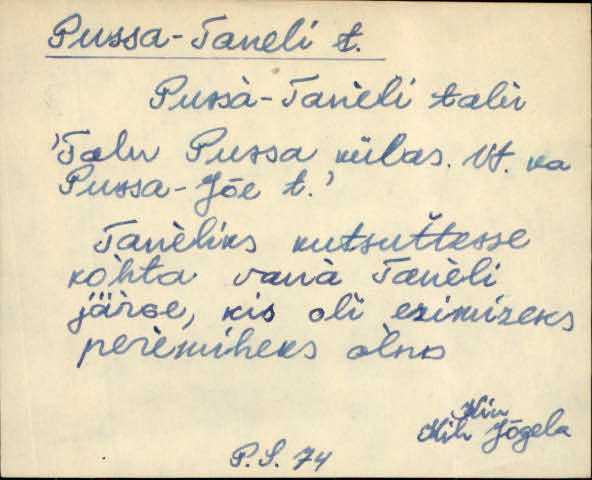 Pussa-Taneli t.
Pussà-Tanèli talu
'Talu Pussa külas. Vt. ka
Pussa-Jõe t.'
Tanèliks kutsuttesse
kòhta vanà Tanèli
järge, kis oli ezimizeks
perèmiheks òlnd
Kin
Kih Jõgela
P.S. 74